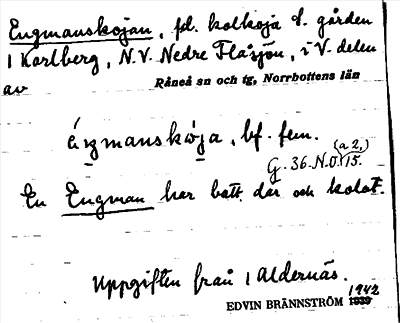 Engmanskojan, fd. kolkoja t. gården
1 Karlberg, N.V. Nedre Flåsjön, i V. delen
av Råneå sn och tg, Norrbottens län
éŋmanskòja, bf. fem.
(a 2,)
G. 36. N.O. 15.
En Engman har bott där och kolat.
Uppgiften från 1 Aldernäs.
1942
EDVIN BRÄNNSTRÖM 1939